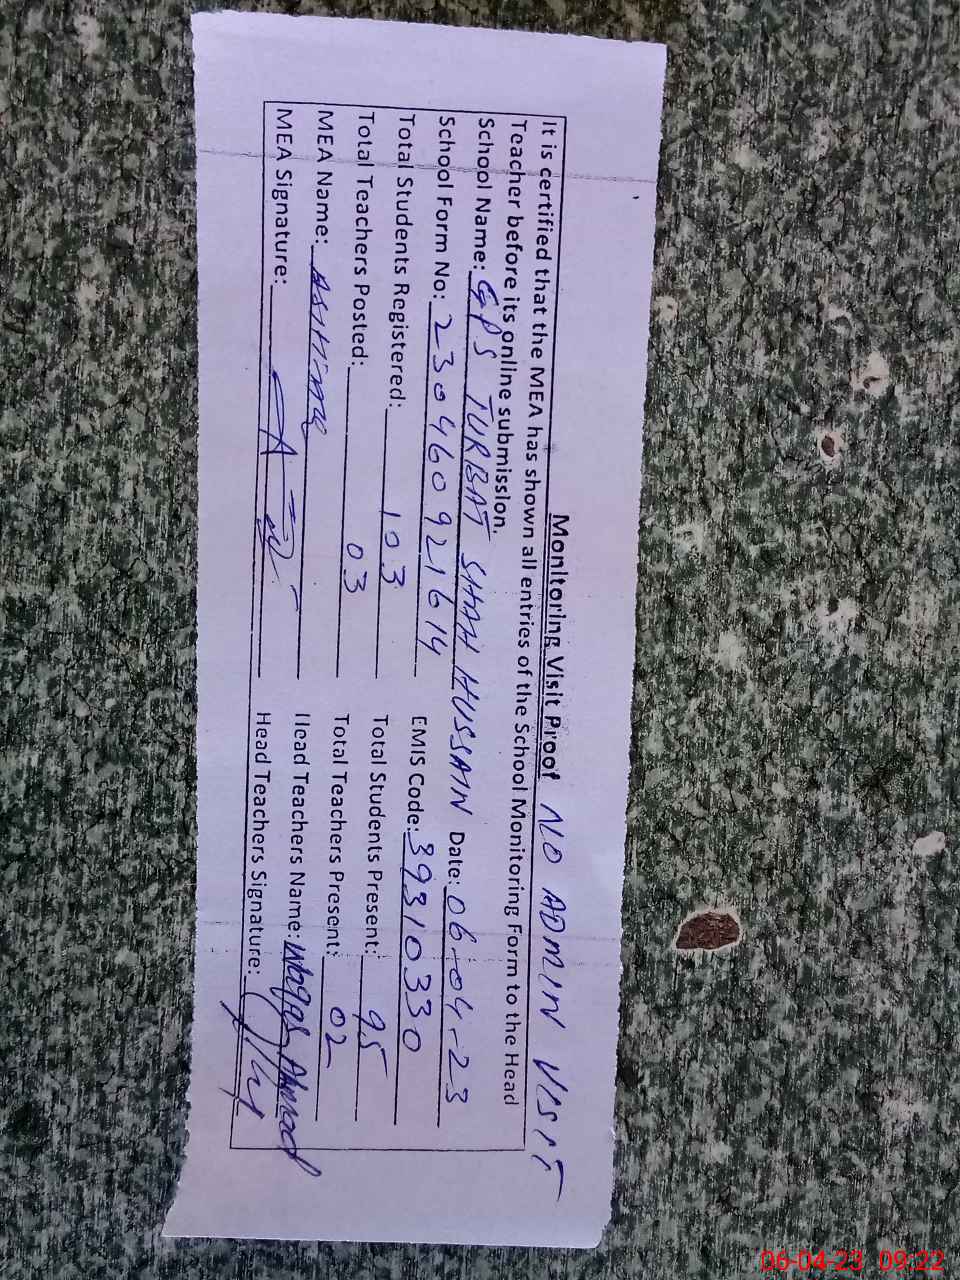 Monitoring Visit Proof NO ADMIN VISIT
It is certified that the MEA has shown all entries of the School Monitoring Form to the Head
Teacher before its online submission.
School Name: GPS TURBAT SHAH HUSSAIN Date: 06-04-23
School Form No: 230460921614 EMIS Code: 39310330
Total Students Registered: 103 Total Students Present: 95
Total Teachers Posted: 03 Total Teachers Present: 02
MEA Name: Head Teachers Name: Waqas Ahmad
MEA Signature: Head Teachers Signature:
06-04-23 09:22